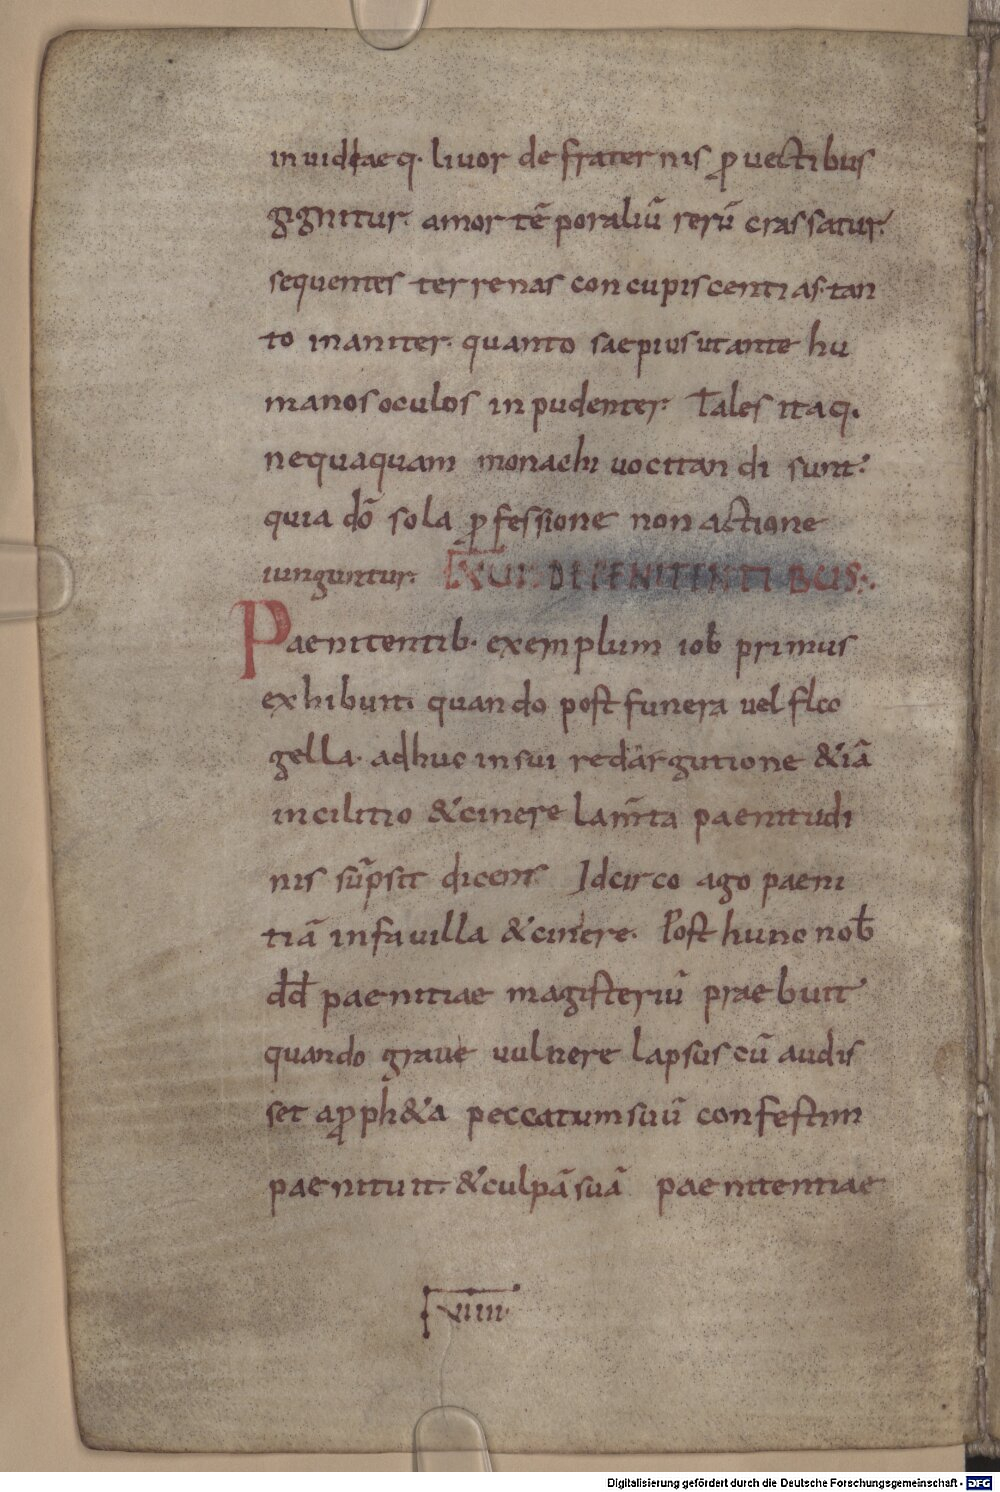 inuideaeq· liuor defraternis ꝓuectibus
gignitur· amor tēporaliū rerū crassatur·
sequentes terrenas concupiscentias·tan
to inaniter· quanto saepiusutante hu
manosoculos inpudenter· Tales itaq·
nequaquam monachi uocitandi sunt·
quia dō sola ꝓfessione non actione
iunguntur· DEPENITENTIBUS:·
Paenitentib· exemplum iob primus
exhibuit· quando post funera uel flco
gella· adhuc insui redargutione &iā
incilitio &cinere lam̄ta paenitudi
nis sūpsit dicens Idcirco ago paeni
tiā infauilla &cinere· Post hunc nob̄
dd̄ paenitiae magisteriū praebuit
quando graue uulnere lapsus cū audis
set aꝓph&a peccatumsuū confestim
paenituit· &culpāsuā paenitentiae
uiiii·
Digitalisierung gefördert durch die Deutsche Forschungsgemeinschaft - DFG